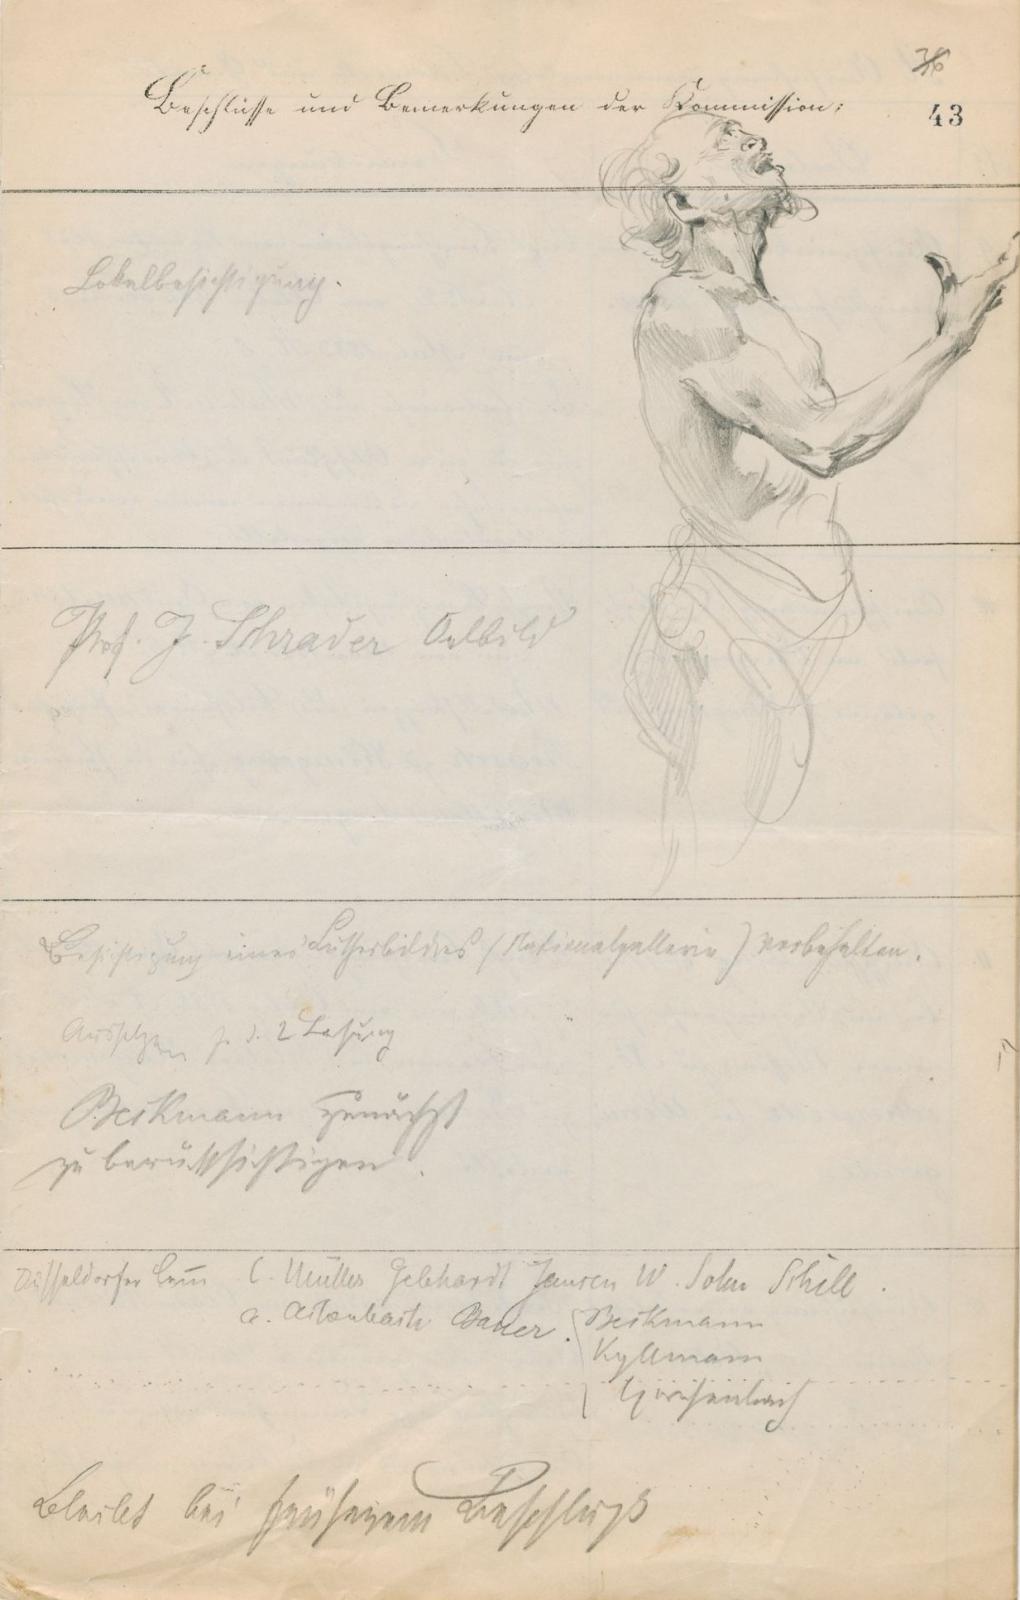 36
Beschlüsse und Bemerkungen der Kommission:
43
Lokalbesichtigung.
Prof. J. Schrader Oelbild
Besichtigung eines Lutherbildes (Nationalgallerie) vorbehalten.
Aussetzen z. 2 Lesung
Beckmann zunächst
zu berücksichtigen.
Düsseldorfer C. Müller Gebhardt Jansen W. Sohn Schill.
a. Achenbach Baur. Beckmann
Kyllmann
Bleibt bei früherem Beschluß